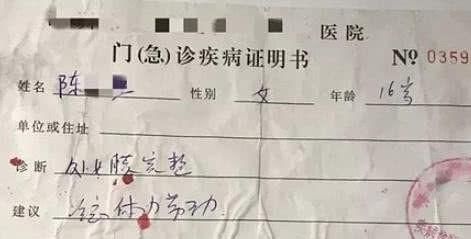 医院
门(急)诊疾病证明书 Nº 0359
姓名 陈 性别 女 年龄 16岁
单位或住址
诊断 处女膜完整
建议 体力劳动